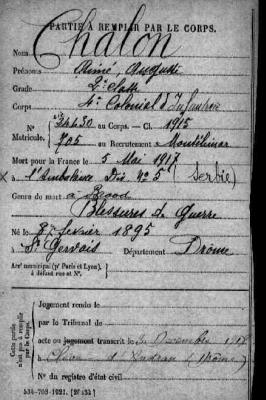 PARTIE À REMPLIR PAR LE CORPS.
Nom Chalon
Prénoms Aimé Auguste
Grade 2e classe
Corps 4e Colonial d'Infanterie
N° 34430 au Corps. — Cl. 1915
Matricule. 705 au Recrutement Montélimar
Mort pour la France le 5 Mai 1917
à l'ambulance Div. N° 5 (Serbie)
Genre de mort à Brood
Blessures de Guerre
Né le 8 février 1895
à St Gervais Département Drôme
Arrt municipal (pr Paris et Lyon),
à défaut rue et N°.
Cette partie
n'est pas à remplir
par le Corps.
Jugement rendu le
par le Tribunal de
acte ou jugement transcrit le
(Drôme)
N° du registre d'état civil
534-708-1921. [26434]